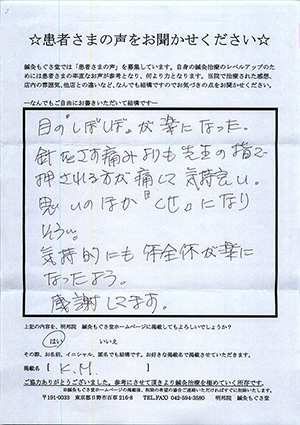 ☆患者さまの声をお聞かせください☆
鍼灸もぐさ堂では『患者さまの声』を募集しています。自身の鍼灸治療のレベルアップのた
めには患者さまの率直なお声が参考となり、何より力となります。当院で治療された感想、
店内の雰囲気、他店との違いなど、なんでも結構ですのでお気づきの点をお聞かせください。
―なんでもご自由にお書きいただいて結構です―
目の『しばしば』が楽になった。
針をさす痛みよりも先生の指で
押される方が痛くて気持良い。
思いのほか『くせ』になり
そうい。
気持的にも体全体が楽に
なったよう。
感謝してます。
上記の内容を、明邦院 鍼灸もぐさ堂ホームページに掲載してもよろしいでしょうか?
はい いいえ
その際、お名前、イニシャル、匿名でも結構です。お好きな掲載名で掲載させていただきます。
掲載名【 K.M 】
ご協力ありがとうございました。参考にさせて頂きより鍼灸治療を極めていく所存です。
※鍼灸もぐさ堂ホームページの掲載後、削除の希望の場合ご連絡いただければすぐに削除いたします。
〒191-0033 東京都日野市百草 210-8 TEL.FAX) 042-594-3580 明邦院 鍼灸もぐさ堂